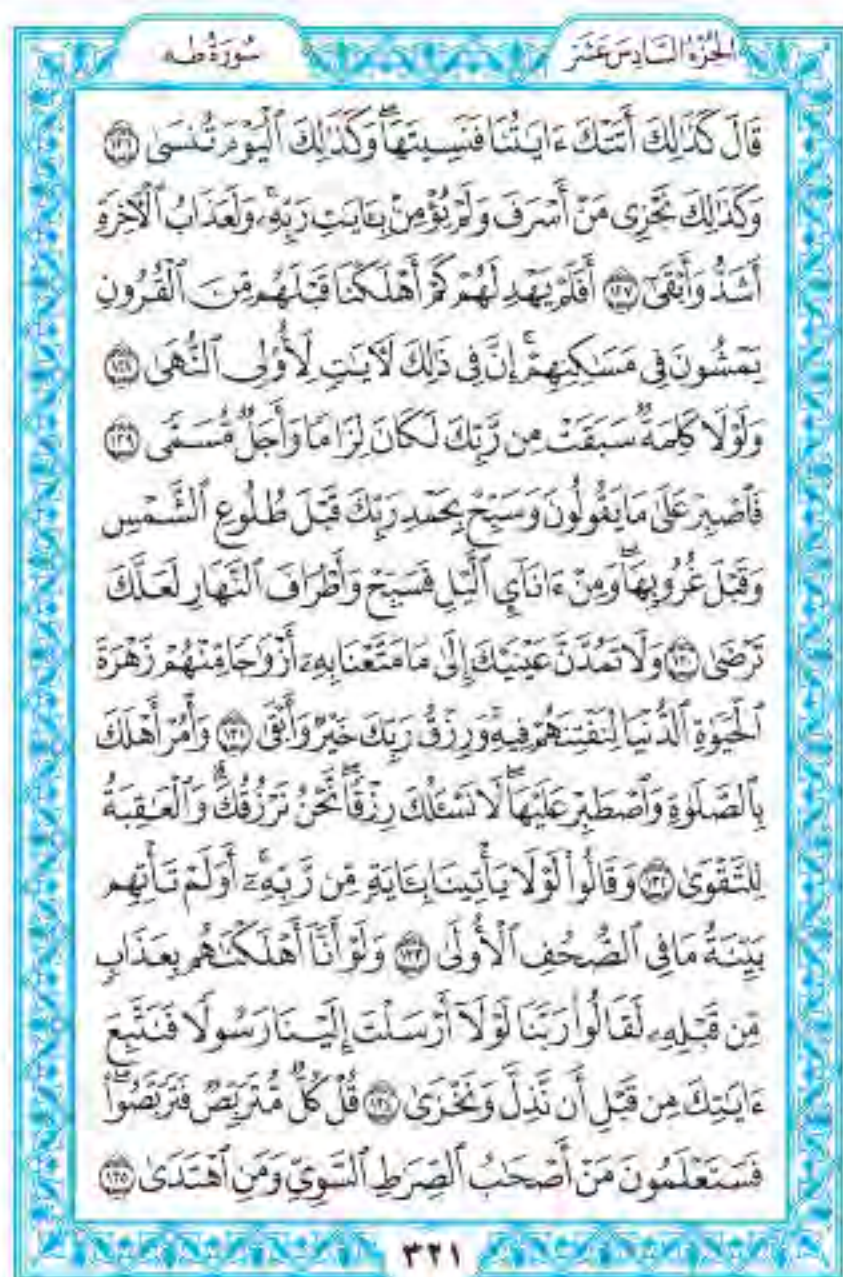 الجُزْءُ السَّادِسَ عَشَر
سُورَةُ طه
قَالَ كَذَٰلِكَ أَتَتْكَ ءَايَٰتُنَا فَنَسِيتَهَاۖ وَكَذَٰلِكَ ٱلْيَوْمَ تُنسَىٰ ﴿١٢٦﴾
وَكَذَٰلِكَ نَجْزِى مَنْ أَسْرَفَ وَلَمْ يُؤْمِنۢ بِـَٔايَٰتِ رَبِّهِۦۚ وَلَعَذَابُ ٱلْـَٔاخِرَةِ
أَشَدُّ وَأَبْقَىٰٓ ﴿١٢٧﴾ أَفَلَمْ يَهْدِ لَهُمْ كَمْ أَهْلَكْنَا قَبْلَهُم مِّنَ ٱلْقُرُونِ
يَمْشُونَ فِى مَسَٰكِنِهِمْۗ إِنَّ فِى ذَٰلِكَ لَـَٔايَٰتٍ لِّأُو۟لِى ٱلنُّهَىٰ ﴿١٢٨﴾
وَلَوْلَا كَلِمَةٌ سَبَقَتْ مِن رَّبِّكَ لَكَانَ لِزَامًا وَأَجَلٌ مُّسَمًّى ﴿١٢٩﴾
فَٱصْبِرْ عَلَىٰ مَا يَقُولُونَ وَسَبِّحْ بِحَمْدِ رَبِّكَ قَبْلَ طُلُوعِ ٱلشَّمْسِ
وَقَبْلَ غُرُوبِهَاۖ وَمِنْ ءَانَآئِ ٱلَّيْلِ فَسَبِّحْ وَأَطْرَافَ ٱلنَّهَارِ لَعَلَّكَ
تَرْضَىٰ ﴿١٣٠﴾ وَلَا تَمُدَّنَّ عَيْنَيْكَ إِلَىٰ مَا مَتَّعْنَا بِهِۦٓ أَزْوَٰجًا مِّنْهُمْ زَهْرَةَ
ٱلْحَيَوٰةِ ٱلدُّنْيَا لِنَفْتِنَهُمْ فِيهِۚ وَرِزْقُ رَبِّكَ خَيْرٌ وَأَبْقَىٰ ﴿١٣١﴾ وَأْمُرْ أَهْلَكَ
بِٱلصَّلَوٰةِ وَٱصْطَبِرْ عَلَيْهَاۖ لَا نَسْـَٔلُكَ رِزْقًاۖ نَّحْنُ نَرْزُقُكَۗ وَٱلْعَٰقِبَةُ
لِلتَّقْوَىٰ ﴿١٣٢﴾ وَقَالُوا۟ لَوْلَا يَأْتِينَا بِـَٔايَةٍ مِّن رَّبِّهِۦٓۚ أَوَلَمْ تَأْتِهِم
بَيِّنَةُ مَا فِى ٱلصُّحُفِ ٱلْأُولَىٰ ﴿١٣٣﴾ وَلَوْ أَنَّآ أَهْلَكْنَٰهُم بِعَذَابٍ
مِّن قَبْلِهِۦ لَقَالُوا۟ رَبَّنَا لَوْلَآ أَرْسَلْتَ إِلَيْنَا رَسُولًا فَنَتَّبِعَ
ءَايَٰتِكَ مِن قَبْلِ أَن نَّذِلَّ وَنَخْزَىٰ ﴿١٣٤﴾ قُلْ كُلٌّ مُّتَرَبِّصٌ فَتَرَبَّصُوا۟ۖ
فَسَتَعْلَمُونَ مَنْ أَصْحَٰبُ ٱلصِّرَٰطِ ٱلسَّوِىِّ وَمَنِ ٱهْتَدَىٰ ﴿١٣٥﴾
٣٢١